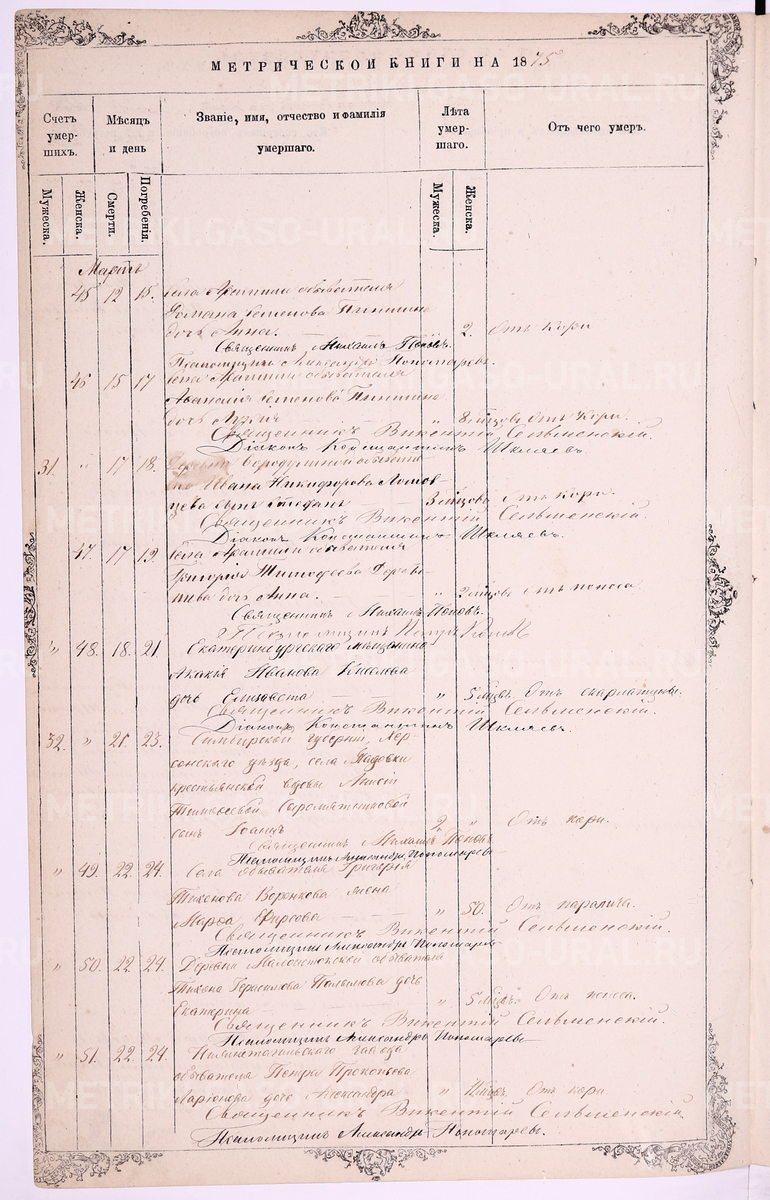 МЕТРИЧЕСКОЙ КНИГИ НА 1875
Счетъ умершихъ.
Мѣсяцъ и день
Званіе, имя, отчество и фамилія умершаго.
Лѣта умершаго.
Отъ чего умеръ.
Мужеска.
Женска.
Смерти.
Погребенія.
Мужеска.
Женска.
Мартъ
45 12 15. села Арамили обывателя
Романа Семенова
дочь Анна. 2. Отъ кори
Священникъ Михаилъ Поповъ.
Псаломщикъ Александръ Пономаревъ.
46 15 17 села Арамили обывателя
Аѳанасія Семенова
дочь " 8 мѣсяцовъ Отъ кори.
Священникъ Викентій Сельменскій.
Діаконъ Константинъ Шкляевъ.
31. " 17 18. Деревни Бородулиной
Ивана Никифорова
сынъ Стефанъ 3 мѣсяцовъ отъ кори.
Священникъ Викентій Сельменскій.
Діаконъ Константинъ Шкляевъ.
47. 17 19 села Арамили обывателя
Григорія Тимофеева
дочь Анна. " 2 отъ поноса
Священникъ Михаилъ Поповъ.
" 48. 18. 21 Екатеринбургскаго мѣщанина
Акакія Иванова Киселева
дочь Елизавета " 5 мѣсяц. Отъ скарлатины.
Священникъ Викентій Сельменскій.
Діаконъ Константинъ Шкляевъ.
32. " 21. 23. Симбирской губерніи,
уѣзда, села
крестьянской вдовы Анисіи
Тимофеевой Сыромятниковой
сынъ Іоаннъ 2. " Отъ кори.
Священникъ Михаилъ Поповъ
Псаломщикъ Александръ Пономаревъ
" 49. 22. 24. Села обывателя Григорія
Тихонова Воронкова жена
Марѳа Фирсова " 50. Отъ паралича.
Священникъ Викентій Сельменскій.
Псаломщикъ Александръ Пономаревъ
" 50. 22. 24. Деревни Малоистокской обывателя
Тихона Герасимова дочь
Екатерина " 5 мѣсяц. Отъ поноса.
Священникъ Викентій Сельменскій.
Псаломщикъ Александръ Пономаревъ
" 51. 22. 24. Нижнетагильскаго завода
обывателя Петра Прокопьева
Ларіонова дочь Александра " Отъ кори
Священникъ Викентій Сельменскій.
Псаломщикъ Александръ Пономаревъ.